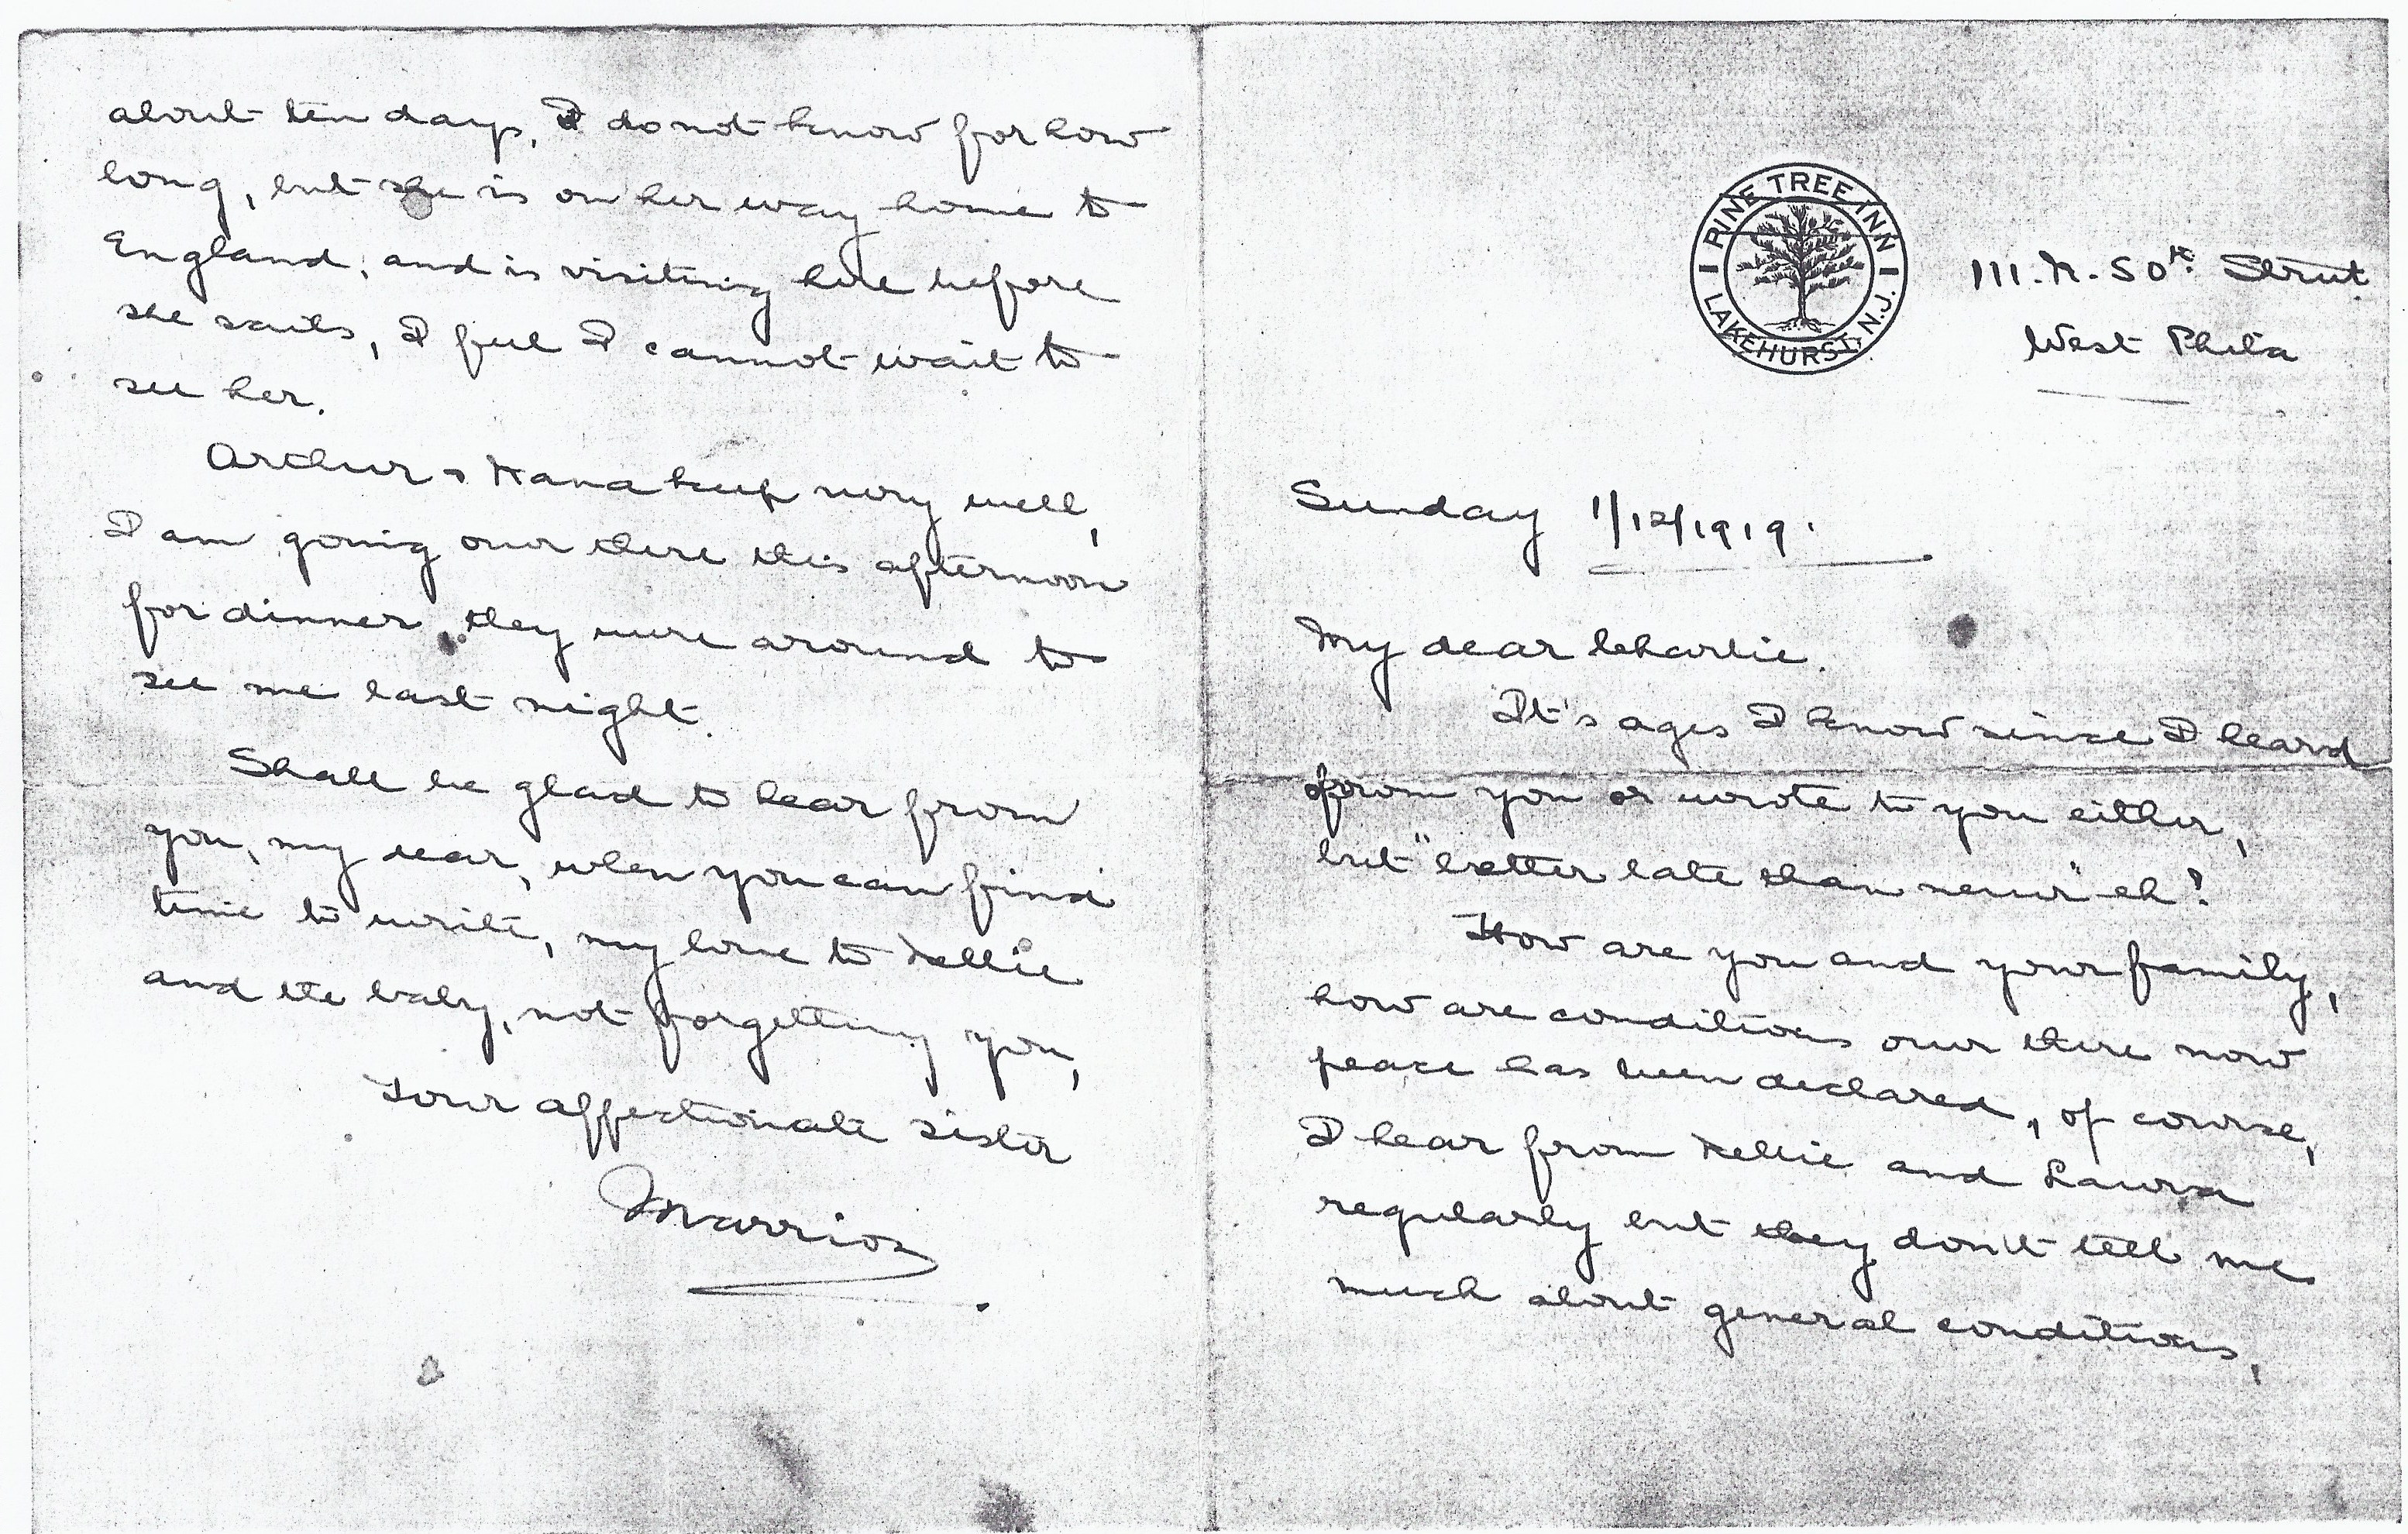 PINE TREE INN
LAKEHURST, N.J.
111. N. 50th Street
West Phila
Sunday 1/12/1919.
My dear Charlie.
It's ages I know since I heard
from you or wrote to you either,
but "better late than never" eh?
How are you and your family,
how are conditions over there now
peace has been declared, of course,
I hear from Nellie and Laura
regularly but they don't tell me
much about general conditions,
about ten days, I do not know for how
long, but she is on her way home to
England, and is visiting here before
she sails, I feel I cannot wait to
see her.
Arthur & Nana keep very well,
I am going over there this afternoon
for dinner, they were around to
see me last night.
Shall be glad to hear from
you, my dear, when you can find
time to write, my love to Nellie
and the baby, not forgetting you,
Your affectionate sister